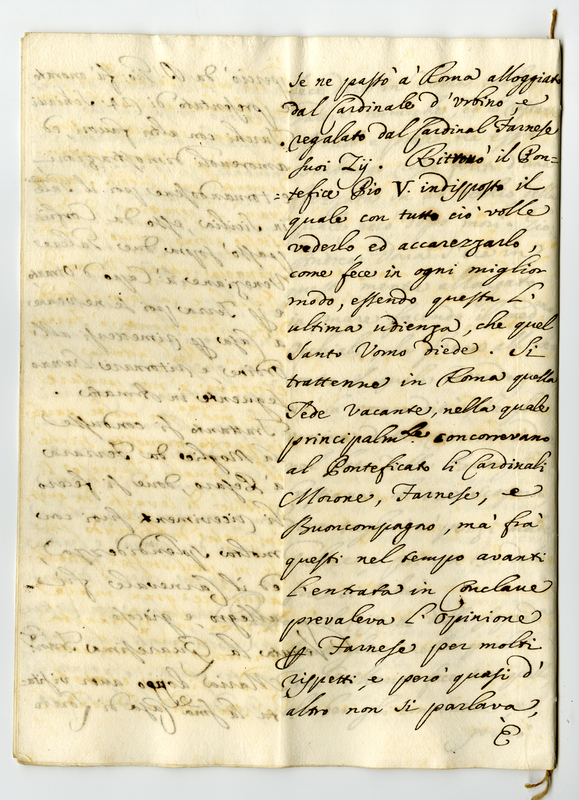 se ne passò à Roma alloggiato
dal Cardinale d'Urbino, e
regalato dal Cardinal Farnese
suoi Zij. Ritrovò il Pon=
=tefice Pio V. indisposto il
quale con tutto ciò volle
vederlo, ed accarezzarlo,
come fece in ogni miglior
modo, essendo questa l'
ultima udienza, che quel
Santo Vomo diede. Si
trattenne in Roma quella
Sede vacante, nella quale
principalm.te concorrevano
al Ponteficato li Cardinali
Morone, Farnese, e
Buoncompagno, mà frà
questi nel tempo avanti
l'entrata in Conclave
prevaleva l'Opinione
Farnese per molti
rispetti, e però quasi d'
altro non si parlava,
E